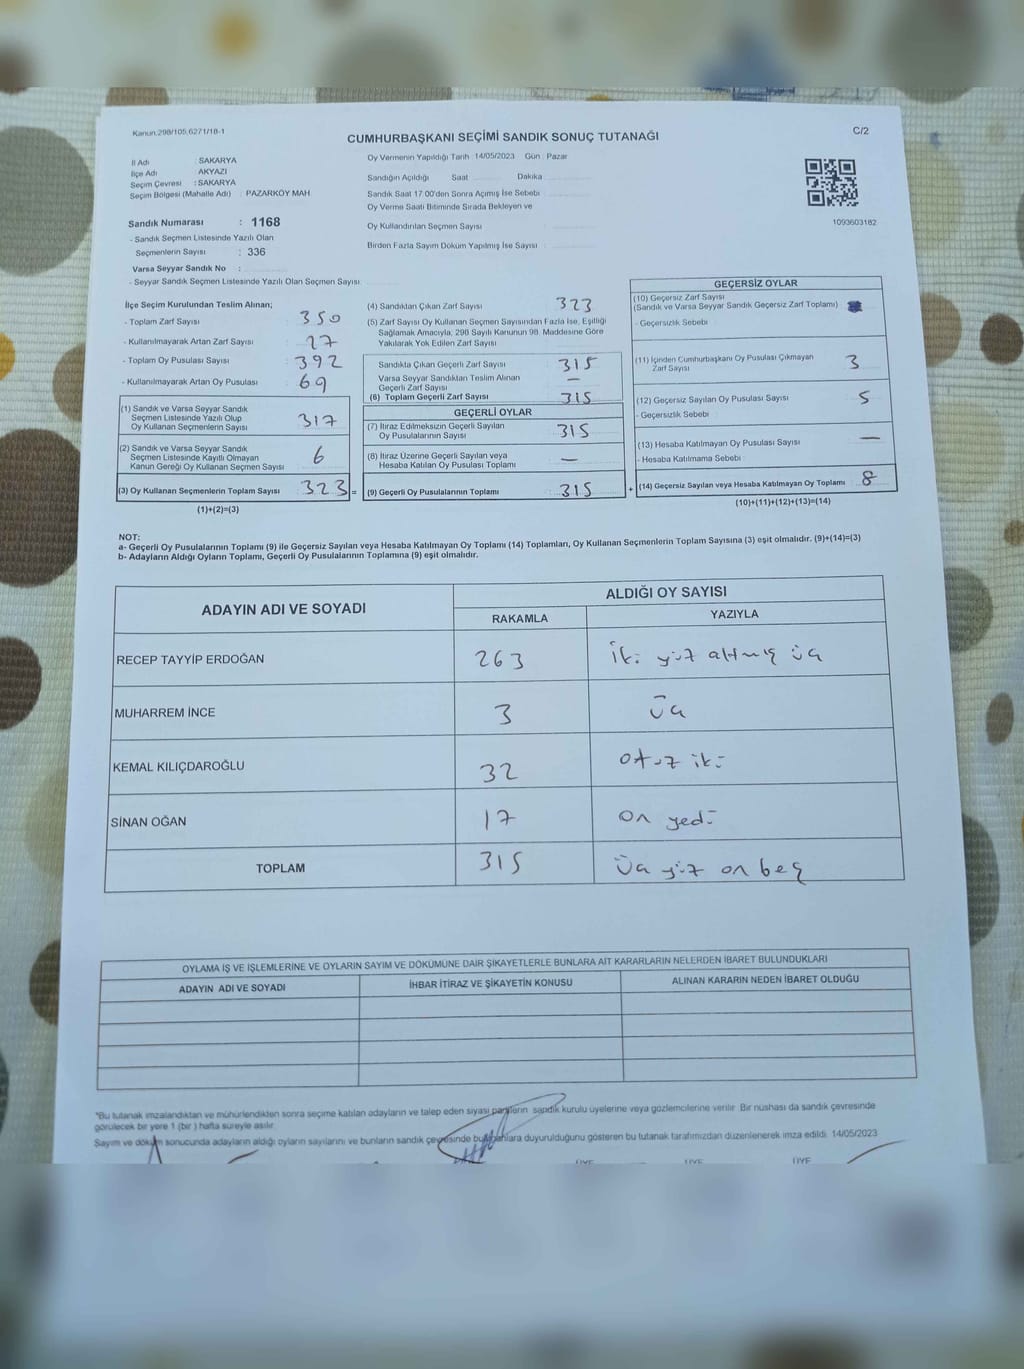 Kanun.298/105,6271/18-1
CUMHURBAŞKANI SEÇİMİ SANDIK SONUÇ TUTANAĞI
C/2
İl Adı : SAKARYA
İlçe Adı : AKYAZI
Seçim Çevresi : SAKARYA
Seçim Bölgesi (Mahalle Adı) : PAZARKÖY MAH.
Sandık Numarası : 1168
- Sandık Seçmen Listesinde Yazılı Olan
Seçmenlerin Sayısı : 336
Varsa Seyyar Sandık No :
- Seyyar Sandık Seçmen Listesinde Yazılı Olan Seçmen Sayısı
Oy Vermenin Yapıldığı Tarih : 14/05/2023 Gün : Pazar
Sandığın Açıldığı Saat Dakika
Sandık Saat 17.00'den Sonra Açılmış İse Sebebi
Oy Verme Saati Bitiminde Sırada Bekleyen ve
Oy Kullandırılan Seçmen Sayısı
Birden Fazla Sayım Döküm Yapılmış İse Sayısı
1093603182
İlçe Seçim Kurulundan Teslim Alınan;
- Toplam Zarf Sayısı : 350
- Kullanılmayarak Artan Zarf Sayısı : 27
- Toplam Oy Pusulası Sayısı : 392
- Kullanılmayarak Artan Oy Pusulası : 69
(1) Sandık ve Varsa Seyyar Sandık
Seçmen Listesinde Yazılı Olup
Oy Kullanan Seçmenlerin Sayısı 317
(2) Sandık ve Varsa Seyyar Sandık
Seçmen Listesinde Kayıtlı Olmayan
Kanun Gereği Oy Kullanan Seçmen Sayısı 6
(3) Oy Kullanan Seçmenlerin Toplam Sayısı 323 =
(1)+(2)=(3)
(4) Sandıktan Çıkan Zarf Sayısı 323
(5) Zarf Sayısı Oy Kullanan Seçmen Sayısından Fazla İse, Eşitliği
Sağlamak Amacıyla, 298 Sayılı Kanunun 98. Maddesine Göre
Yakılarak Yok Edilen Zarf Sayısı
Sandıkta Çıkan Geçerli Zarf Sayısı 315
Varsa Seyyar Sandıktan Teslim Alınan
Geçerli Zarf Sayısı —
(6) Toplam Geçerli Zarf Sayısı 315
GEÇERLİ OYLAR
(7) İtiraz Edilmeksizin Geçerli Sayılan
Oy Pusulalarının Sayısı 315
(8) İtiraz Üzerine Geçerli Sayılan veya
Hesaba Katılan Oy Pusulası Toplamı —
(9) Geçerli Oy Pusulalarının Toplamı 315 +
GEÇERSİZ OYLAR
(10) Geçersiz Zarf Sayısı
(Sandık ve Varsa Seyyar Sandık Geçersiz Zarf Toplamı)
- Geçersizlik Sebebi
(11) İçinden Cumhurbaşkanı Oy Pusulası Çıkmayan
Zarf Sayısı 3
(12) Geçersiz Sayılan Oy Pusulası Sayısı 5
- Geçersizlik Sebebi
(13) Hesaba Katılmayan Oy Pusulası Sayısı —
- Hesaba Katılmama Sebebi
(14) Geçersiz Sayılan veya Hesaba Katılmayan Oy Toplamı 8
(10)+(11)+(12)+(13)=(14)
NOT:
a- Geçerli Oy Pusulalarının Toplamı (9) ile Geçersiz Sayılan veya Hesaba Katılmayan Oy Toplamı (14) Toplamları, Oy Kullanan Seçmenlerin Toplam Sayısına (3) eşit olmalıdır. (9)+(14)=(3)
b- Adayların Aldığı Oyların Toplamı, Geçerli Oy Pusulalarının Toplamına (9) eşit olmalıdır.
ADAYIN ADI VE SOYADI
ALDIĞI OY SAYISI
RAKAMLA YAZIYLA
RECEP TAYYİP ERDOĞAN 263 İki yüz altmış üç
MUHARREM İNCE 3 üç
KEMAL KILIÇDAROĞLU 32 otuz iki
SİNAN OĞAN 17 On yedi
TOPLAM 315 Üç yüz on beş
OYLAMA İŞ VE İŞLEMLERİNE VE OYLARIN SAYIM VE DÖKÜMÜNE DAİR ŞİKAYETLERLE BUNLARA AİT KARARLARIN NELERDEN İBARET BULUNDUKLARI
ADAYIN ADI VE SOYADI İHBAR İTİRAZ VE ŞİKAYETİN KONUSU ALINAN KARARIN NEDEN İBARET OLDUĞU
*Bu tutanak imzalandıktan ve mühürlendikten sonra seçime katılan adayların ve talep eden siyasi partilerin sandık kurulu üyelerine veya gözlemcilerine verilir. Bir nüshası da sandık çevresinde
görülecek bir yere 1 (bir) hafta süreyle asılır.
Sayım ve döküm sonucunda adayların aldığı oyların sayılarını ve bunların sandık çevresinde bulunanlara duyurulduğunu gösteren bu tutanak tarafımızdan düzenlenerek imza edildi. 14/05/2023
ÜYE ÜYE ÜYE